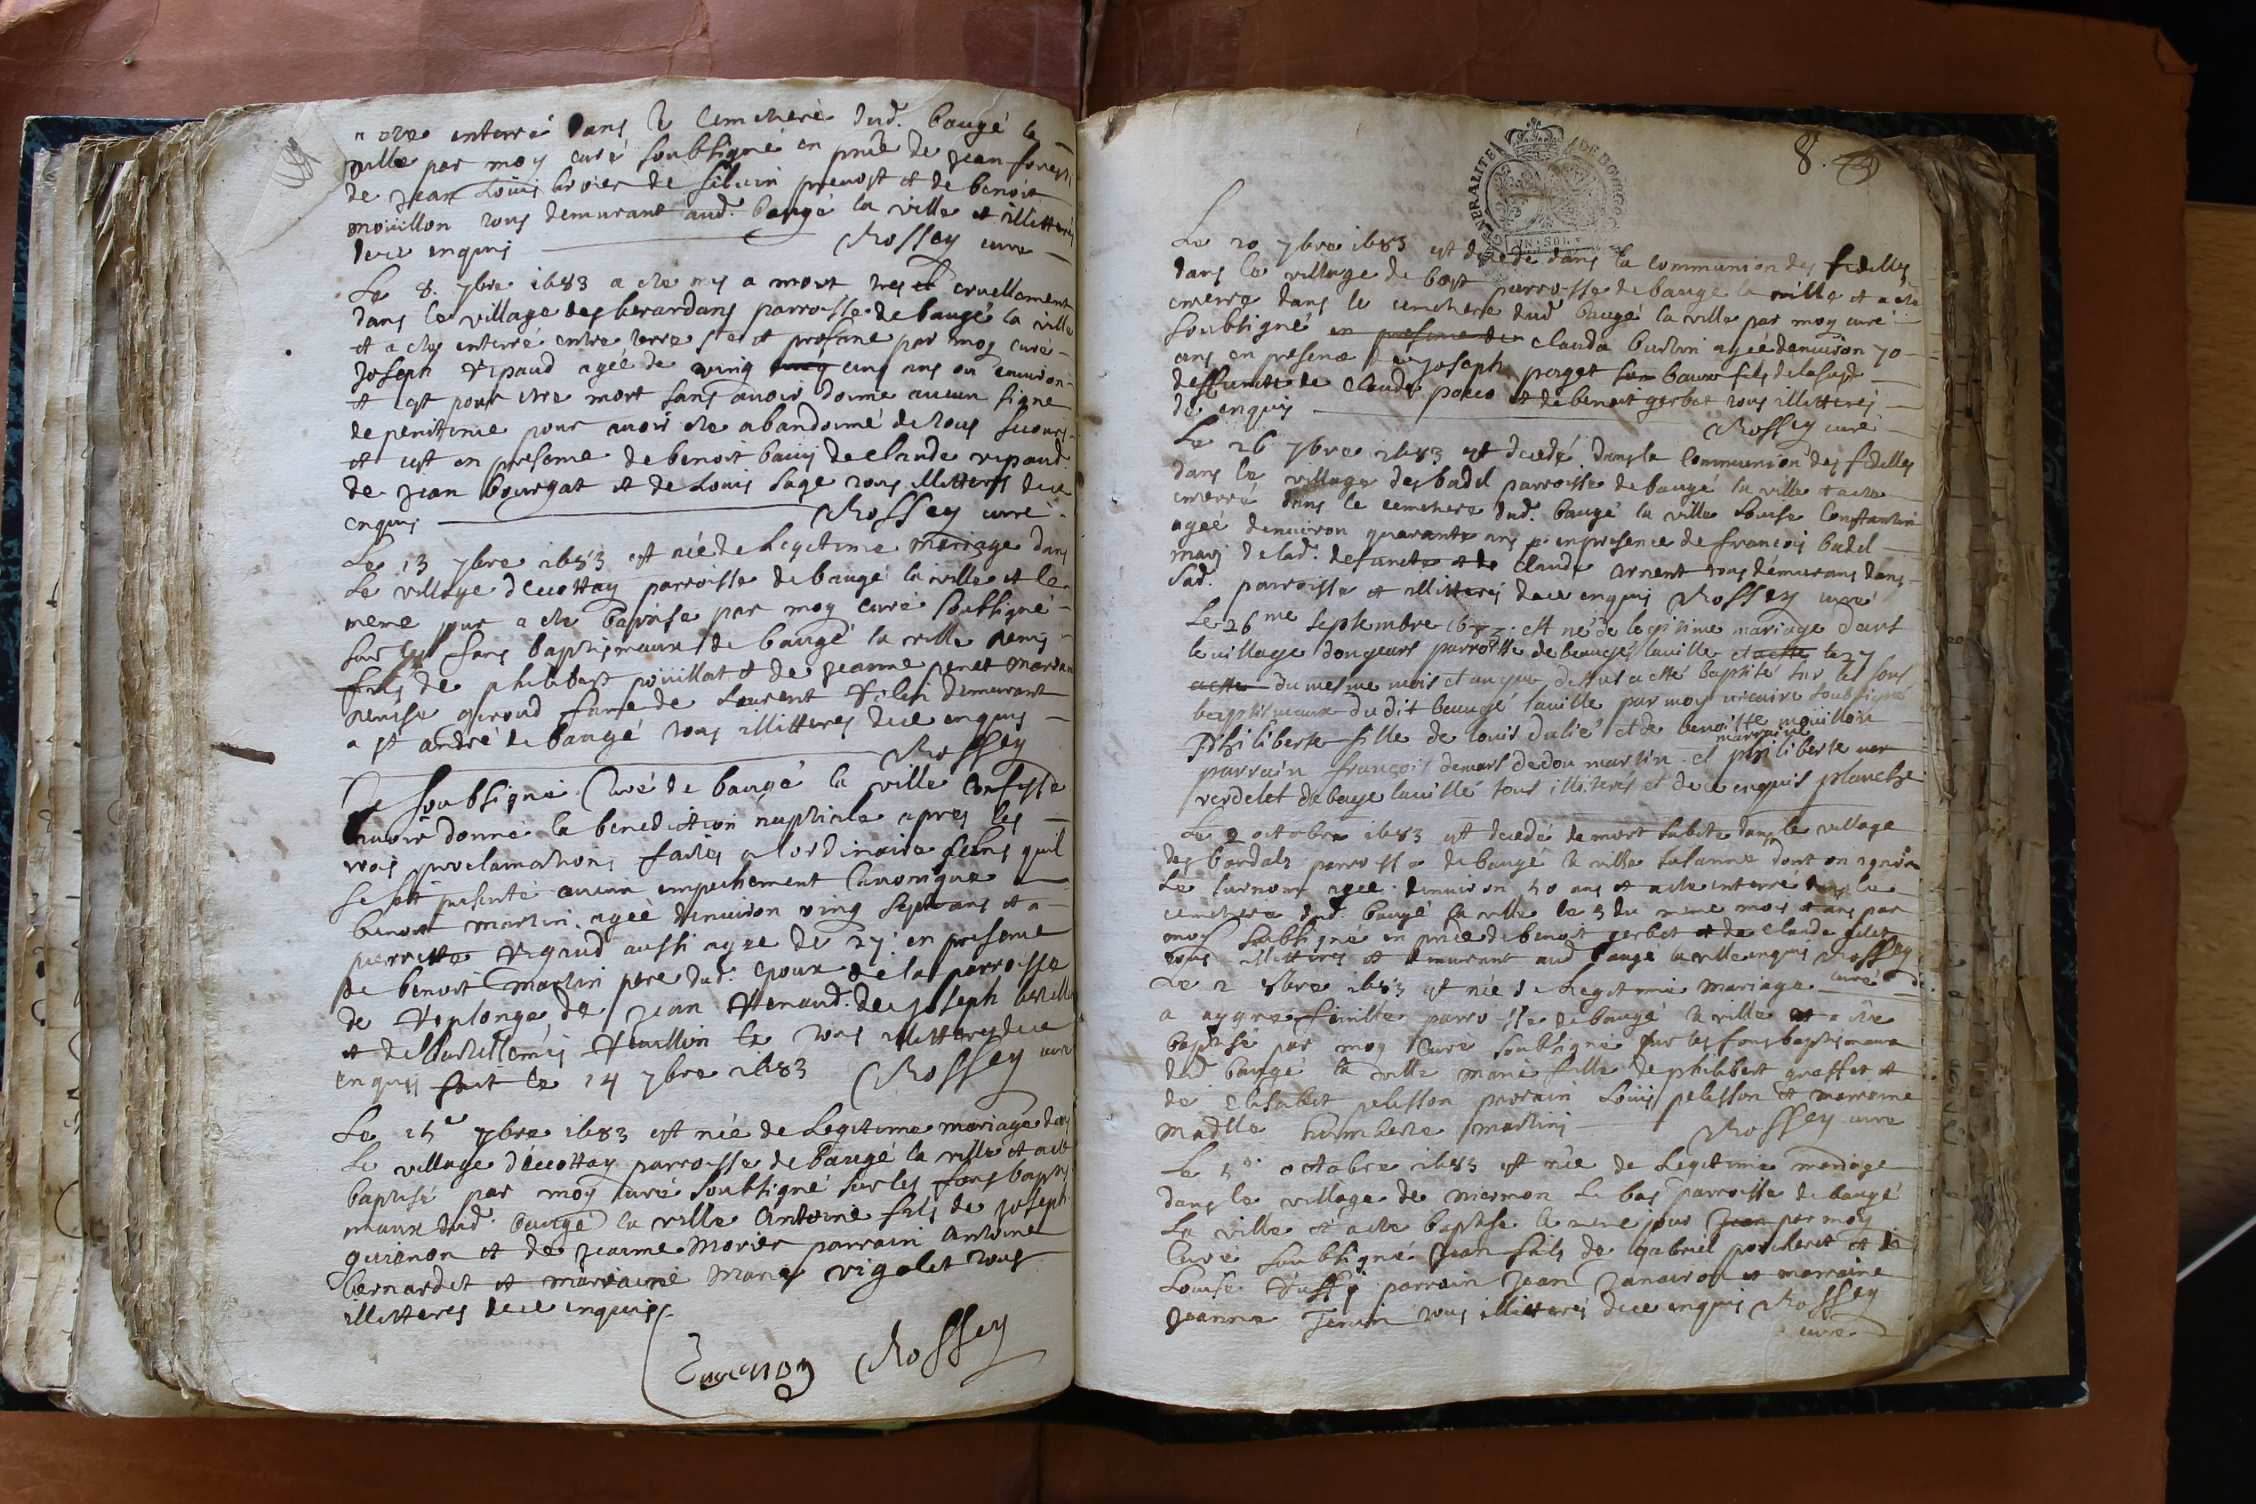 a este enterré dans le cemetiere dud. baugé la
ville par moy curé soubsigné en pnce de Jean forest
de Jean Louis de silvin prevost et de benoit
moüillon tous demurant aud. baugé la ville et illitterés
dece enquis Rossey curé
Le 8. 7bre 1683 a este mis a mort tres cruellement
dans le village des berardans parroisse de baugé la ville
et a esté enterré entre terre ste et profane par moy curé
Joseph ripaud agéé de ving cinq ans ou environ
et est pour etre mort sans avoir donné aucun signe
de penitence pour avoir este abandonné de tous secours
et cest en presence de benoit de claude ripaud
de Jean bourgat et de Louis sage tous illitterés dece
enquis Rossey curé
Le 13 7bre 1683 est née de Legitime mariage dans
Le village decottay parroisse de baugé la ville et le
meme jour a este baptisé par moy curé soubsigné
sur les fons baptismaux de baugé la ville
fils de philibert poüillat et de jeanne
denise giroud fame de Laurent demurant
a st andré de baugé tous illitteres dece enquis
Rossey
Je soubsigné Curé de baugé la ville confesse
avoir donné la benediction nuptiale apres les
trois proclamations faites a lordinaire sans quil
se soit presenté aucun empechement Canonique a
benoit martin agéé denviron ving sept ans et a
pierrette aussi agee de 27 en presence
de benoit martin pere dud. epoux de la parroisse
de replonge de Jean de Joseph
et de tous illitteres dece
enquis fait le 14 7bre 1683 Rossey curé
Le 15e 7bre 1683 est née de Legitime mariage dans
Le village décottay parroisse de baugé la ville et a esté
baptisé par moy curé soubsigné sur les fons baptis
maux dud. baugé la ville Antoine fils de Joseph
guienon et de jeanne Morier parrain Antoine
bernardet et marraine Marie vigolet tous
illitteres dece enquis
Rossey
8.
GENERALITE DE BOURGO
UN SOL
Le 20 7bre 1683 est decede dans la Communion des fidelles
dans le village de bost parroisse de baugé la ville et a esté
enterré dans le cemetiere dud baugé la ville par moy curé
soubsigné en presence de claude burtin agéé denviron 70
ans en presence de joseph perget fils de la susde
deffuncte de claude et de benoit gerbet tous illitterés
de enquis Rossey curé
Le 26 7bre 1683 est decedé dans la Communion des fidelles
dans le village des badel parroisse de baugé la ville et a este
enterré dans le cemetiere dud. baugé la ville Louise Constantin
agéé denviron quarante ans en presence de francois badel
mary de lad. defuncte et de claude arnent tous demurans dans
lad. parroisse et illitterés dece enquis Rossey curé
Le 26me septembre 1683 est né de legitime mariage dans
le village dongears parroisse de beaugé laville et a este le 27
a este du mesme mois et an que dessus a esté baptisé sur les fons
baptismaux du dit beaugé laville par moy vicaire soubsigné
Philiberte fille de louis dalié et de benoitte moüillon
marraine
parrain françois demars dedommartin et philiberte ver
verdelet de bage laville tous illiterés et de ce enquis planche
Le 2 octobre 1683 est decedé de mort subite dans le village
des bardels parroisse de baugé la ville susanne dont on ignore
Le surnom agee denviron 50 ans et a este enterré dans le
cemetiere dud. baugé la ville le 3 du meme mois et ans par
moy soubsigné en pnce de benoit gerbet et de claude gelet
tous illitterés et demurant aud bauge la ville enquis Rossey
curé
Le 2 8bre 1683 est née de Legitime Mariage
a aygrefeuille parroisse de baugé la ville et a este
baptisé par moy Curé soubsigné sur les fons baptismaux
dud baugé la ville marie fille de philibert graffet et
de Elisabet pelisson parrain Loüis pelisson et marraine
madlle humberte martin Rossey curé
Le 5e octobre 1683 est née de Legitime mariage
dans le village de mermon Le bas parroisse de baugé
La ville et a este baptise le meme jour Jean par moy
Curé soubsigné Jean fils de gabriel porcheret et de
Louise parrain Jean Janaudon et marraine
Jeanne Jenin tous illitterés dece enquis Rossey
curé